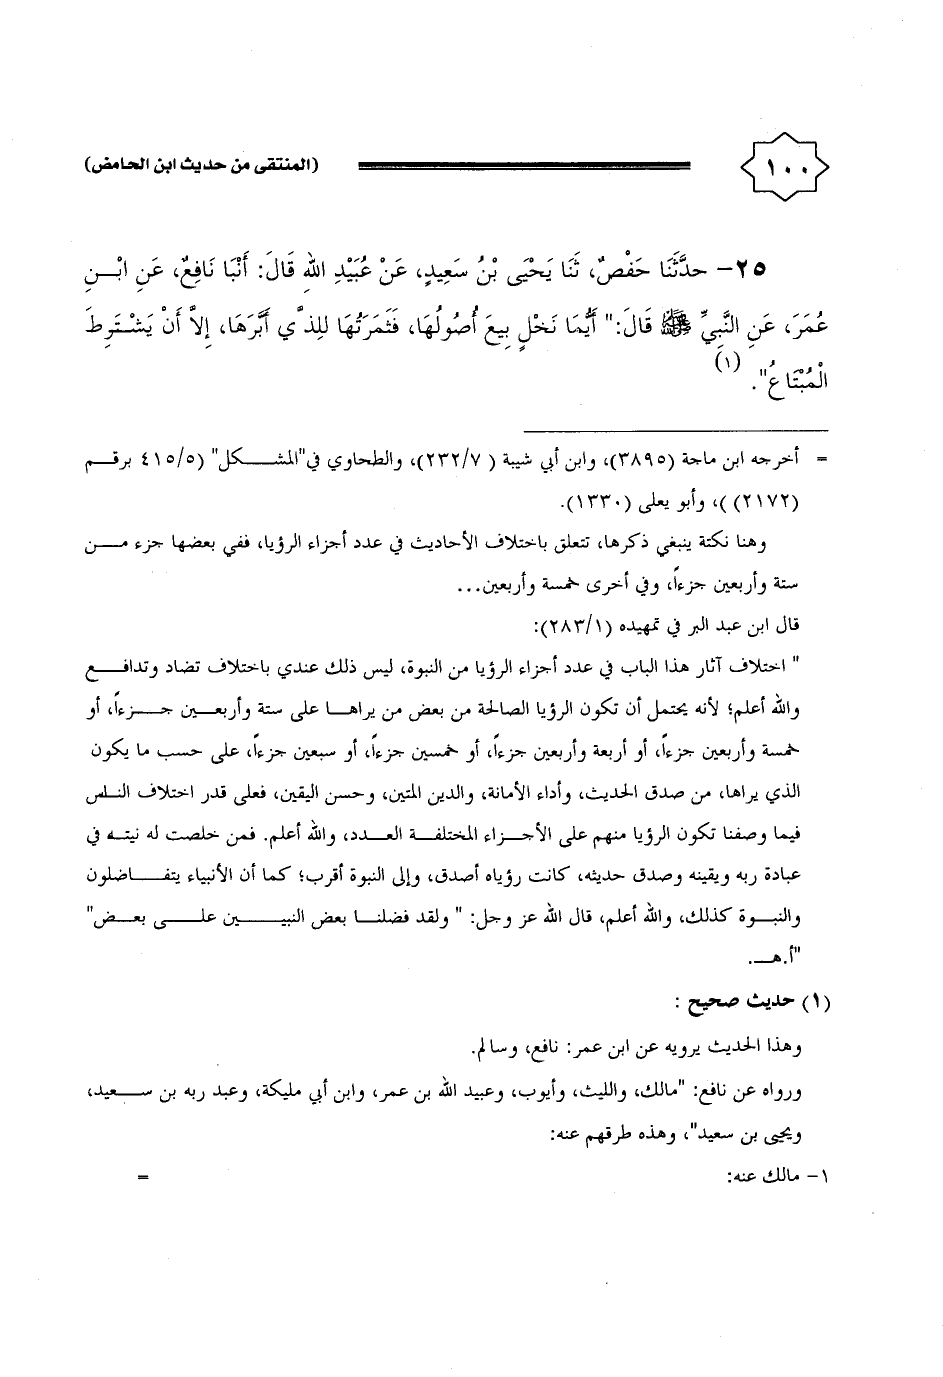 ١٠٠ (المنتقى من حديث ابن الحامض)
٢٥- حدَّثَنَا حَفْصٌ، ثَنَا يَحْيَى بْنُ سَعِيدٍ، عَنْ عُبَيْدِ اللهِ قَالَ: أَنْبَا نَافِعٌ، عَنِ ابْنِ
عُمَرَ، عَنِ النَّبِيِّ ﷺ قَالَ:" أَيُّمَا نَخْلٍ بِيعَ أُصُولُهَا، فَثَمَرَتُهَا لِلذَّي أَبَّرَهَا، إِلاَّ أَنْ يَشْتَرِطَ
الْمُبْتَاعُ". (١)
= أخرجه ابن ماجة (٣٨٩٥)، وابن أبي شيبة ( ٢٣٢/٧)، والطحاوي في"المشكل" (٤١٥/٥ برقم
(٢١٧٢) )، وأبو يعلى (١٣٣٠).
وهنا نكتة ينبغي ذكرها، تتعلق باختلاف الأحاديث في عدد أجزاء الرؤيا، ففي بعضها جزء من
ستة وأربعين جزءاً، وفي أخرى خمسة وأربعين...
قال ابن عبد البر في تمهيده (٢٨٣/١):
" اختلاف آثار هذا الباب في عدد أجزاء الرؤيا من النبوة، ليس ذلك عندي باختلاف تضاد وتدافع
والله أعلم؛ لأنه يحتمل أن تكون الرؤيا الصالحة من بعض من يراها على ستة وأربعين جزءاً، أو
خمسة وأربعين جزءاً، أو أربعة وأربعين جزءاً، أو خمسين جزءاً، أو سبعين جزءاً، على حسب ما يكون
الذي يراها، من صدق الحديث، وأداء الأمانة، والدين المتين، وحسن اليقين، فعلى قدر اختلاف الناس
فيما وصفنا تكون الرؤيا منهم على الأجزاء المختلفة العدد، والله أعلم. فمن خلصت له نيته في
عبادة ربه ويقينه وصدق حديثه، كانت رؤياه أصدق، وإلى النبوة أقرب؛ كما أن الأنبياء يتفاضلون
والنبوة كذلك، والله أعلم، قال الله عز وجل: " ولقد فضلنا بعض النبيين على بعض"
"أ.هـ.
(١) حديث صحيح :
وهذا الحديث يرويه عن ابن عمر: نافع، وسالم.
ورواه عن نافع: "مالك، والليث، وأيوب، وعبيد الله بن عمر، وابن أبي مليكة، وعبد ربه بن سعيد،
ويحيى بن سعيد"، وهذه طرقهم عنه:
١- مالك عنه: =